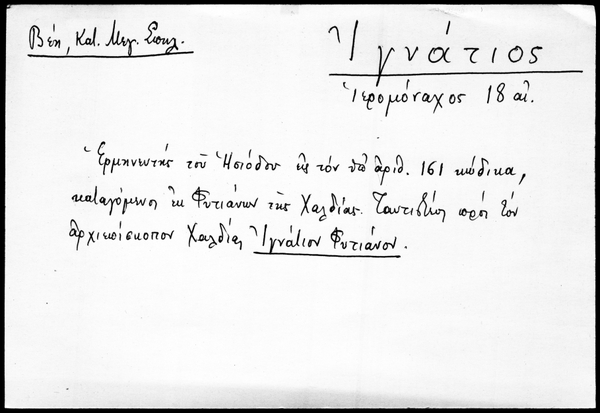 Βέη, Κατ. Μεγ. Σπηλ.
Ἰγνάτιος
Ἱερομόναχος 18 αἰ.
Ἑρμηνευτής τοῦ Ἡσιόδου εἰς τόν ὑπ' ἀριθ. 161 κώδικα,
καταγόμενος ἐκ Φυτιάνων τῆς Χαλδίας. Ταυτισθείς πρός τόν
ἀρχιεπίσκοπον Χαλδίας Ἰγνάτιον Φυτιάνον.